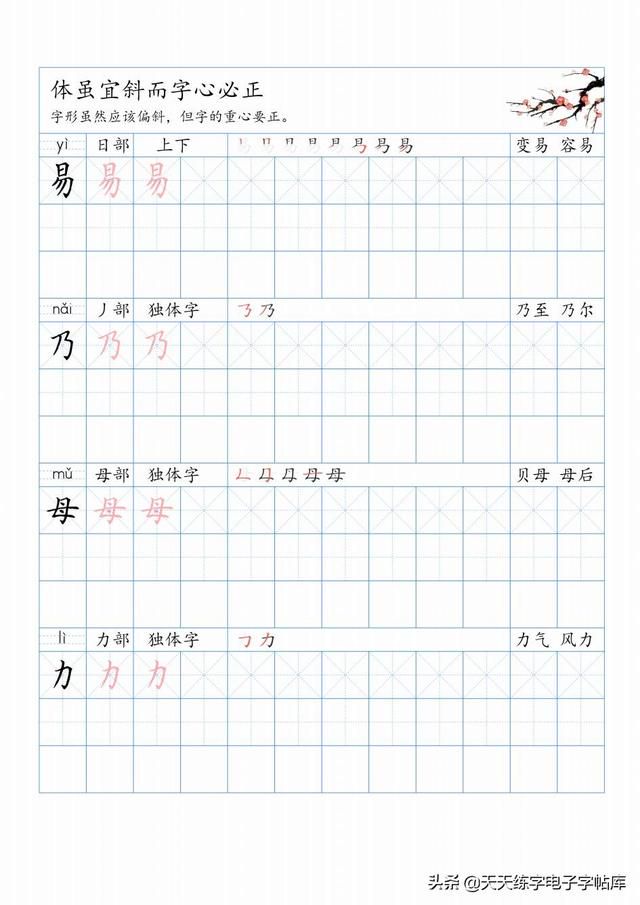 体虽宜斜而字心必正
字形虽然应该偏斜，但字的重心要正。
yì 日部 上下 变易 容易
易 易 易
nǎi 丿部 独体字 乃至 乃尔
乃 乃 乃
mǔ 母部 独体字 贝母 母后
母 母 母
lì 力部 独体字 力气 风力
力 力 力
头条 @天天练字电子字帖库